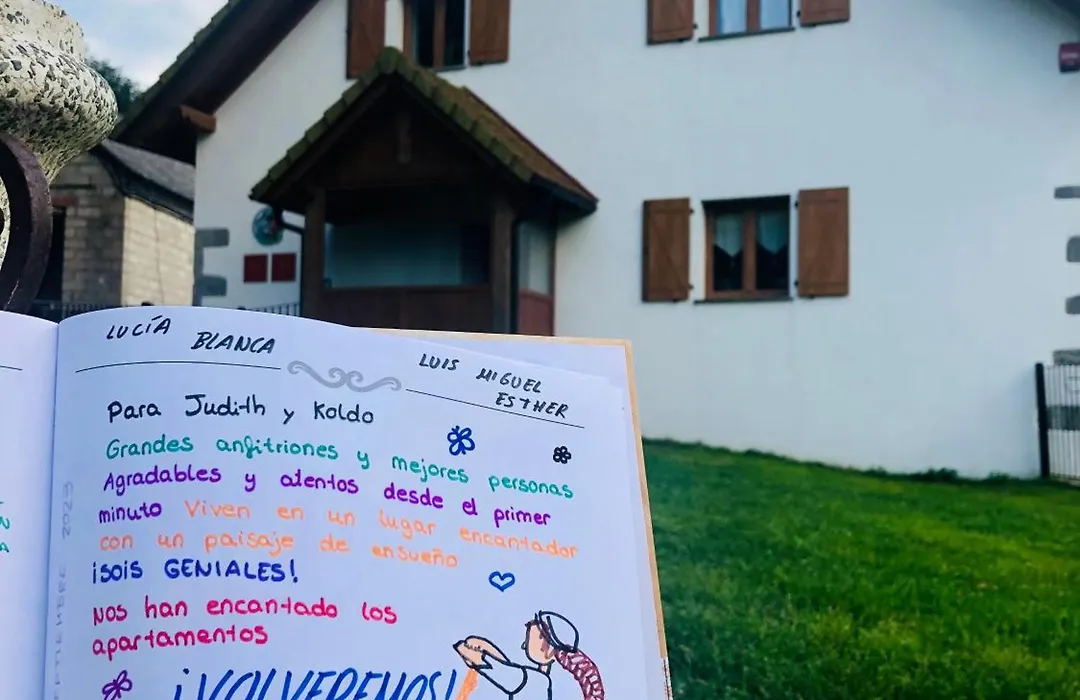 LUCÍA BLANCA
LUIS MIGUEL
ESTHER
Para Judith y Koldo
Grandes anfitriones y mejores personas
Agradables y atentos desde el primer
minuto Viven en un lugar encantador
con un paisaje de ensueño
¡SOIS GENIALES!
Nos han encantado los
apartamentos
¡VOLVEREMOS!
2023